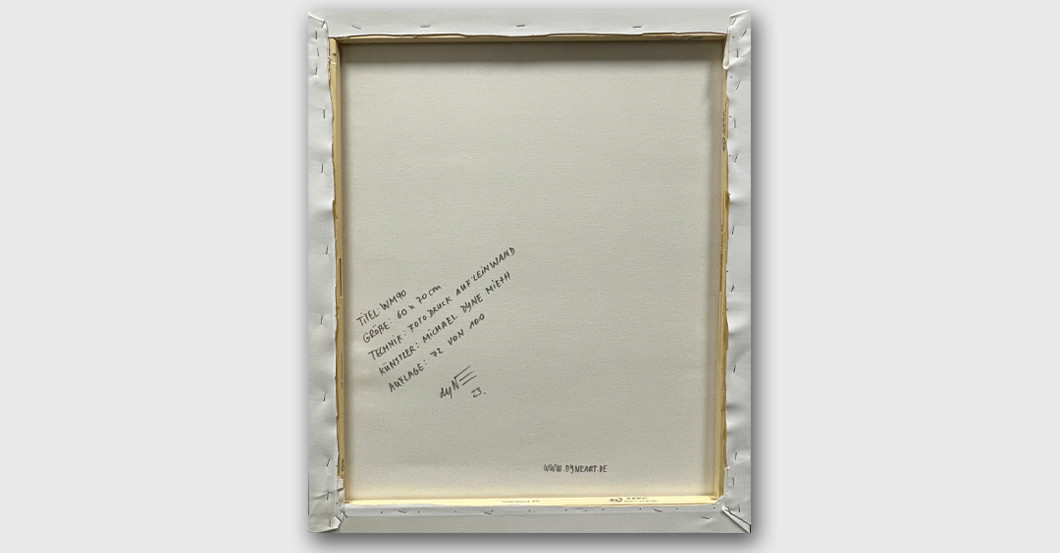 TITEL: WM90
GRÖßE: 60 x 70 cm
TECHNIK: FOTODRUCK AUF LEINWAND
KÜNSTLER: MICHAEL DYNE MIETH
AUFLAGE: 72 VON 100
dyNE
23.
WWW.DYNEART.DE